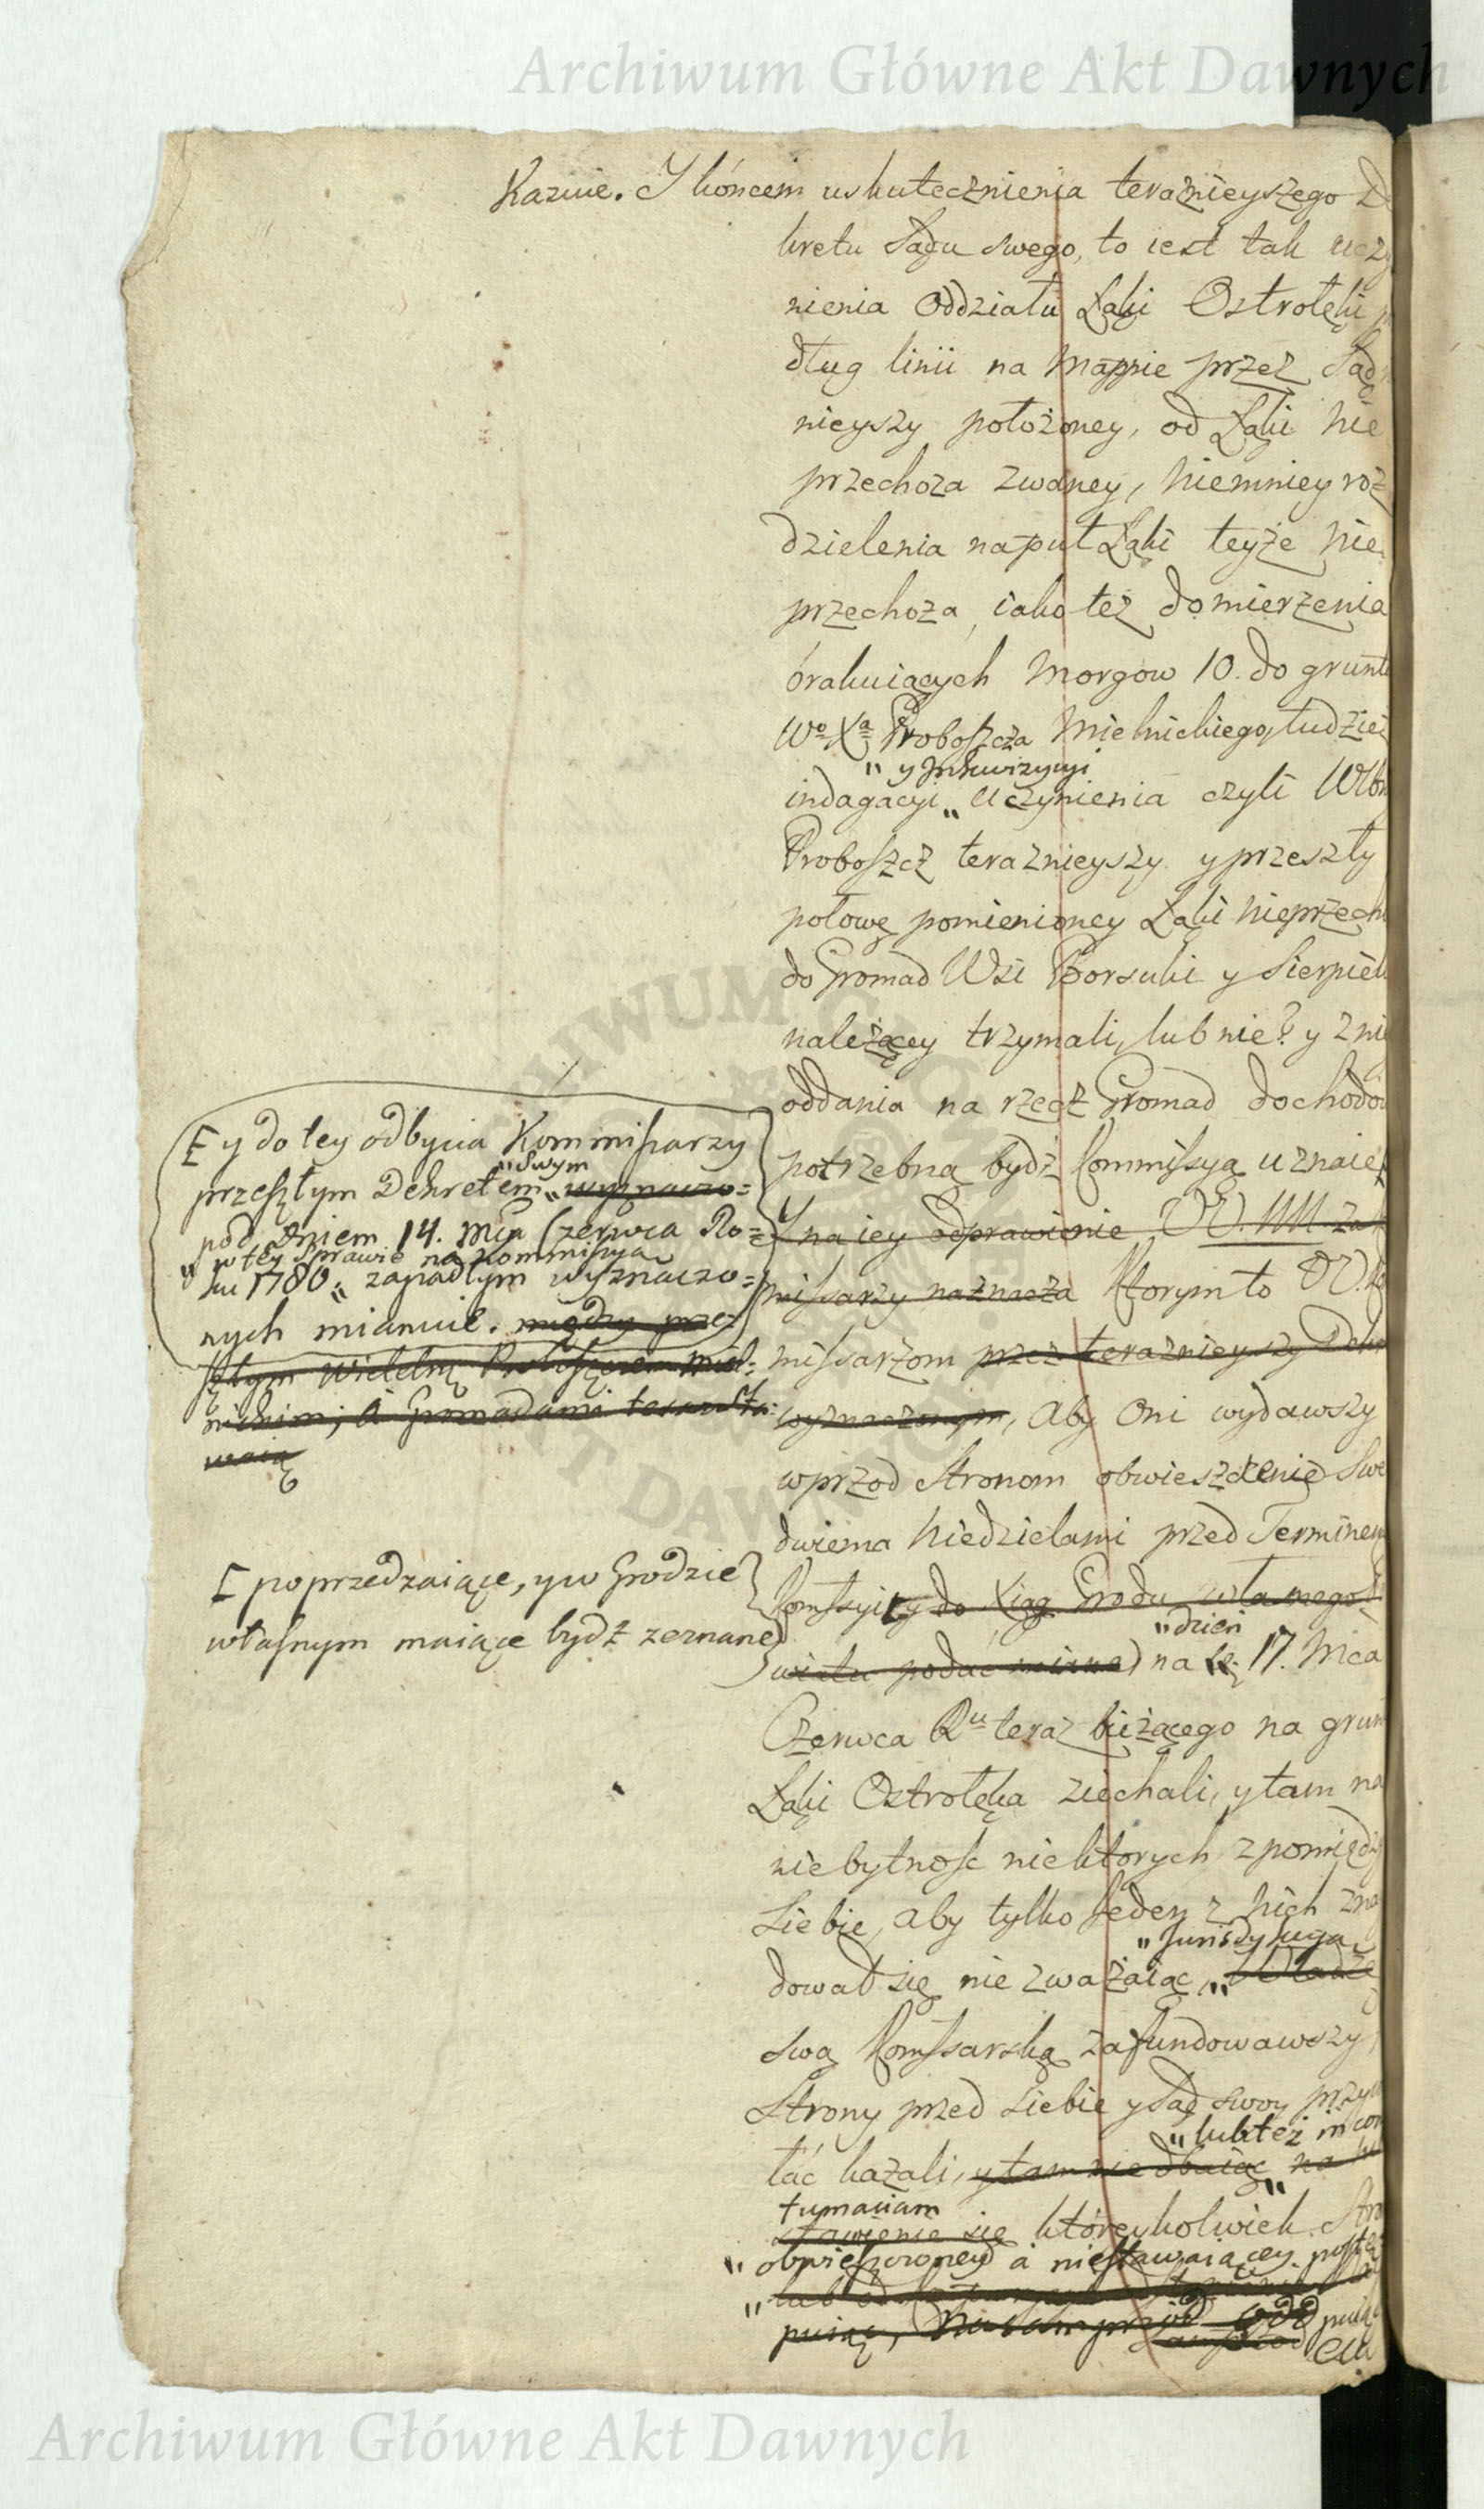 Archiwum Główne Akt Dawnych
Kazuie. Y końcem uskutecznienia teraznieyszego De
kretu Sądu swego, to iest tak uczy
nienia Oddziału Łąki Ostrołęki
dług linii na Mappie przez Sąd
nieyszy położoney, od Łąki Nie
przechoza zwaney, Niemniey roz
dzielenia na puł Łąki teyże Nie
przechoza, iako też domierzenia
brakuiących Morgow 10. do grunt
Wo Xa Proboszcza Mielnickiego, tudzież
" y Inkwizycyi
indagacyi " Uczynienia czyli Wlbn
Proboszcz teraznieyszy y przeszły
połowę pomienioney Łąki Nieprzecho
do Gromad Wsi Borsuki y Sierpiel
należącey trzymali, lub nie? y z nie
oddania na rzecz Gromad dochodow
potrzebną bydź Kommissyą uznaie
Y na iey odprawienie UU. NN za
missarzy naznacza Ktorym to UU. Ko
missarzom przez teraznieyszy Dekr
wyznaczonym, Aby Oni wydawszy
wprzod Stronom obwieszczenie Swe
dwiema Niedzielami przed Terminem
Komssyi y do Xiąg Grodu wła snego
" dzień
na 17. Mca
Czerwca Ru teraz bieżącego na grun
Łąki Ostrołęka ziechali, y tam na
niebytnosc niektorych z pomiędzy
Siebie, Aby tylko Jeden z Nich zna
" Jurisdykcyą
dował się nie zważaiąc, " Władzę
swą Komssarską zafundowawszy,
Strony przed Siebie y Sąd swoy przyw
" lub też in con
łać kazali, y tam nie dbaiąc " na
tumaciam
stawienie się któreykolwiek Stro
" obwieszczoney a niestawaiącey postę
[ y do tey odbycia Kommissarzy
" swym
przeszłym Dekretem " wyznaczo=
pod Dniem 14. Mca Czerwca Ro=
" w tey Sprawie na Kommissyą
ku 1780 " zapadłym wyznaczo=
nych mianuie. między prze=
szłym Wielebnym Proboszczem Miel=
nickim; a Gromadami
[ poprzedzaiące, y w Grodzie
własnym maiące bydź zeznane
Archiwum Główne Akt Dawnych